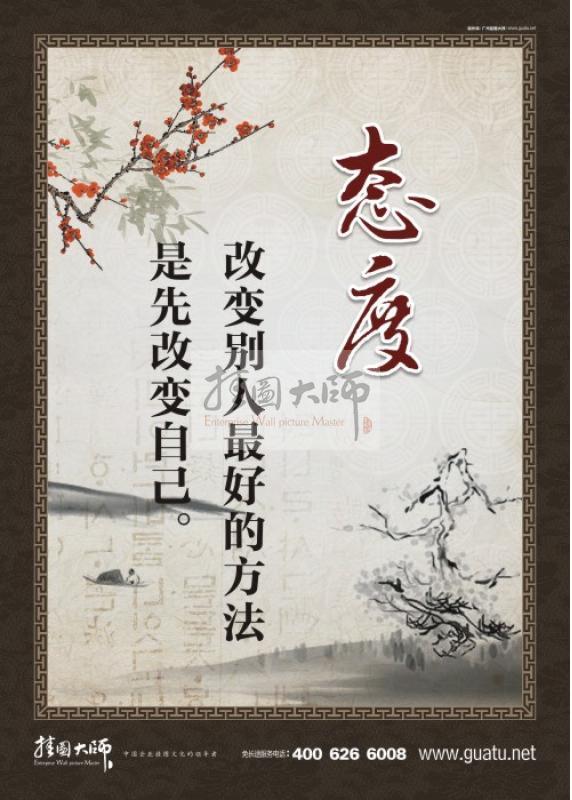 www.guatu.net
态度
改变别人最好的方法
是先改变自己。
挂图大师
Enterprise Wall picture Master
挂图大师
Enterprise Wall picture Master
中国企业挂图文化的领导者
免长途服务电话:400 626 6008
www.guatu.net